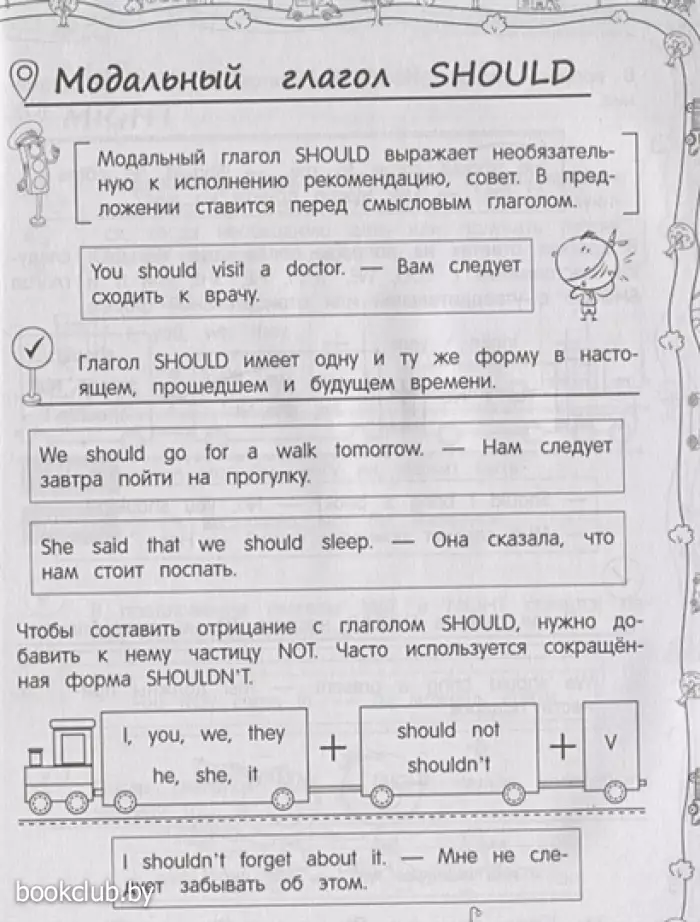 Модальный глагол SHOULD
Модальный глагол SHOULD выражает необязатель-
ную к исполнению рекомендацию, совет. В пред-
ложении ставится перед смысловым глаголом.
You should visit a doctor. — Вам следует
сходить к врачу.
Глагол SHOULD имеет одну и ту же форму в насто-
ящем, прошедшем и будущем времени.
We should go for a walk tomorrow. — Нам следует
завтра пойти на прогулку.
She said that we should sleep. — Она сказала, что
нам стоит поспать.
Чтобы составить отрицание с глаголом SHOULD, нужно до-
бавить к нему частицу NOT. Часто используется сокращён-
ная форма SHOULDN'T.
I, you, we, they
he, she, it
+
should not
shouldn't
+
V
I shouldn't forget about it. — Мне не сле-
дует забывать об этом.
bookclub.by